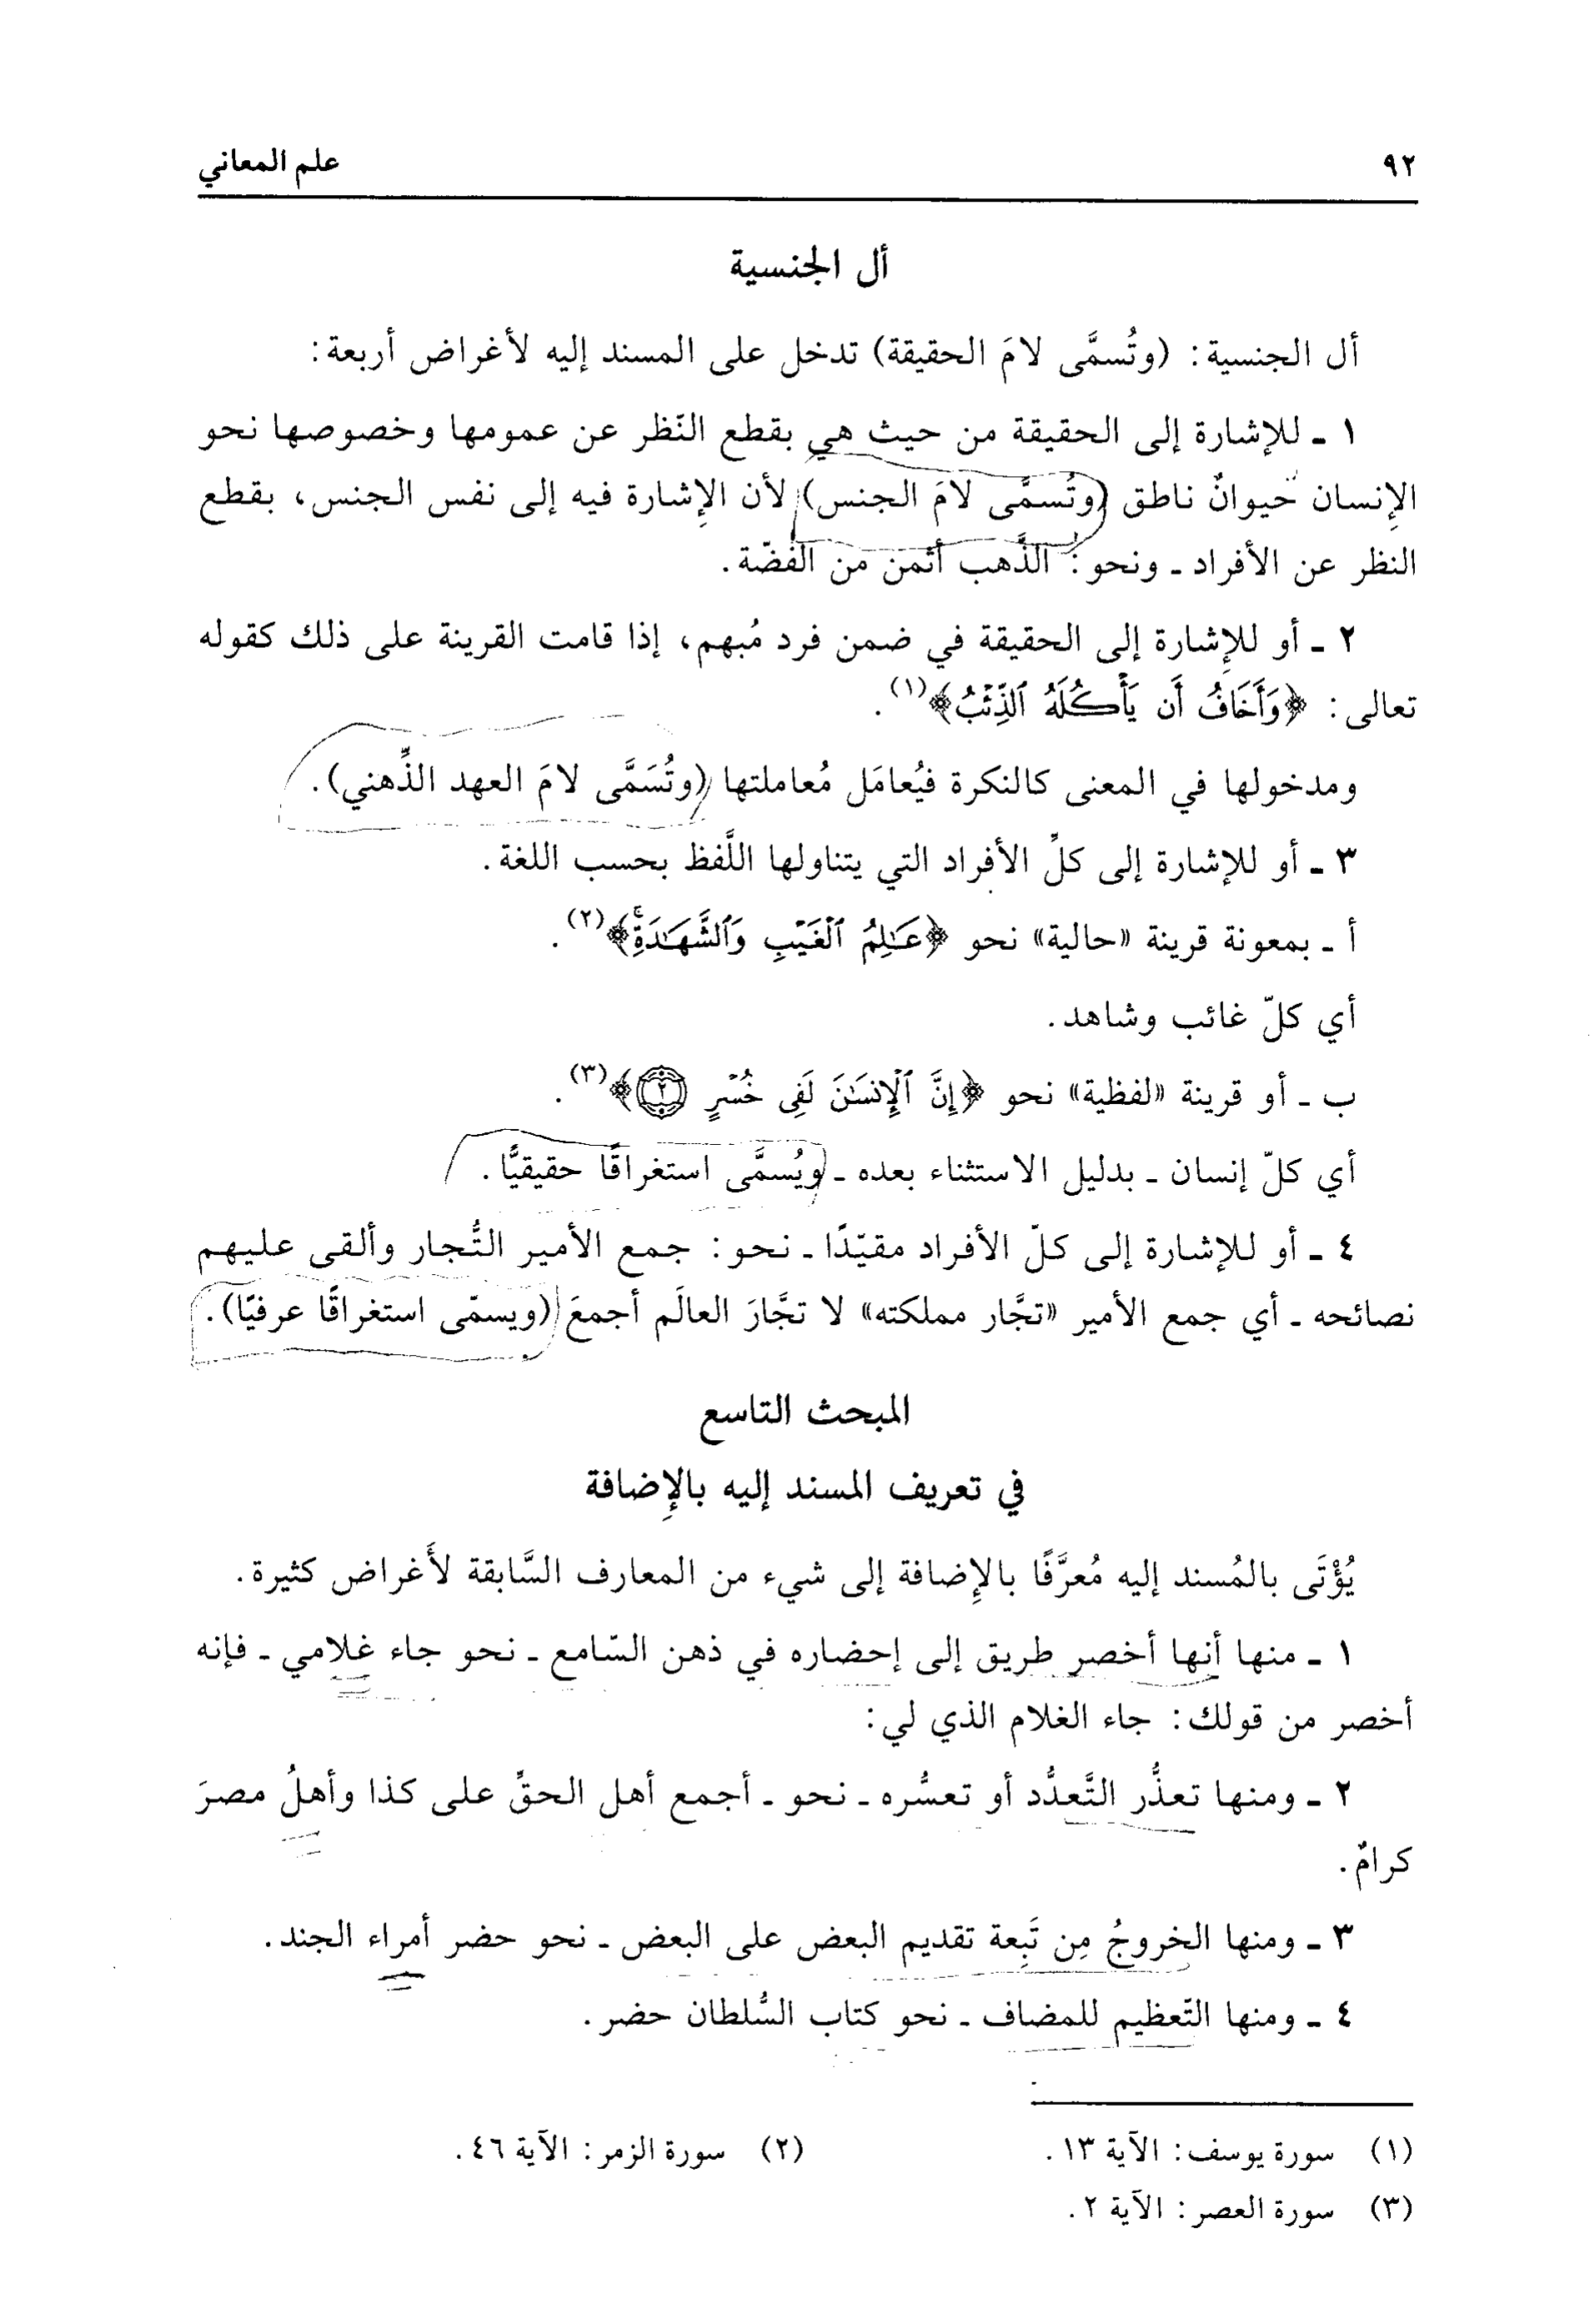 ٩٢ علم المعاني
أل الجنسية
أل الجنسية: (وتُسمَّى لامَ الحقيقة) تدخل على المسند إليه لأغراض أربعة:
١ ـ للإشارة إلى الحقيقة من حيث هي بقطع النّظر عن عمومها وخصوصها نحو
الإنسان حيوانٌ ناطق (وتُسمَّى لامَ الجنس) لأن الإشارة فيه إلى نفس الجنس، بقطع
النظر عن الأفراد ـ ونحو: الذَّهب أثمن من الفضّة.
٢ ـ أو للإشارة إلى الحقيقة في ضمن فرد مُبهم، إذا قامت القرينة على ذلك كقوله
تعالى: ﴿وَأَخَافُ أَن يَأْكُلَهُ ٱلذِّئْبُ﴾(١).
ومدخولها في المعنى كالنكرة فيُعامَل مُعاملتها (وتُسَمَّى لامَ العهد الذِّهني).
٣ ـ أو للإشارة إلى كلِّ الأفراد التي يتناولها اللَّفظ بحسب اللغة.
أ ـ بمعونة قرينة «حالية» نحو ﴿عَـٰلِمُ ٱلْغَيْبِ وَٱلشَّهَـٰدَةِۚ﴾(٢).
أي كلّ غائب وشاهد.
ب ـ أو قرينة «لفظية» نحو ﴿إِنَّ ٱلْإِنسَـٰنَ لَفِى خُسْرٍ ٢﴾(٣).
أي كلّ إنسان ـ بدليل الاستثناء بعده ـ ويُسمَّى استغراقًا حقيقيًّا.
٤ ـ أو للإشارة إلى كلّ الأفراد مقيّدًا ـ نحو: جمع الأمير التُّجار وألقى عليهم
نصائحه ـ أي جمع الأمير «تجَّار مملكته» لا تجَّارَ العالَم أجمعَ (ويسمّى استغراقًا عرفيًا).
المبحث التاسع
في تعريف المسند إليه بالإضافة
يُؤْتَى بالمُسند إليه مُعرَّفًا بالإضافة إلى شيء من المعارف السَّابقة لأَغراض كثيرة.
١ ـ منها أنها أخصر طريق إلى إحضاره في ذهن السّامع ـ نحو جاء غلامي ـ فإنه
أخصر من قولك: جاء الغلام الذي لي:
٢ ـ ومنها تعذُّر التَّعدُّد أو تعسُّره ـ نحو ـ أجمع أهل الحقِّ على كذا وأهلُ مصرَ
كرامٌ.
٣ ـ ومنها الخروجُ مِن تَبِعة تقديم البعض على البعض ـ نحو حضر أمراء الجند.
٤ ـ ومنها التّعظيم للمضاف ـ نحو كتاب السُّلطان حضر.
(١) سورة يوسف: الآية ١٣. (٢) سورة الزمر: الآية ٤٦.
(٣) سورة العصر: الآية ٢.